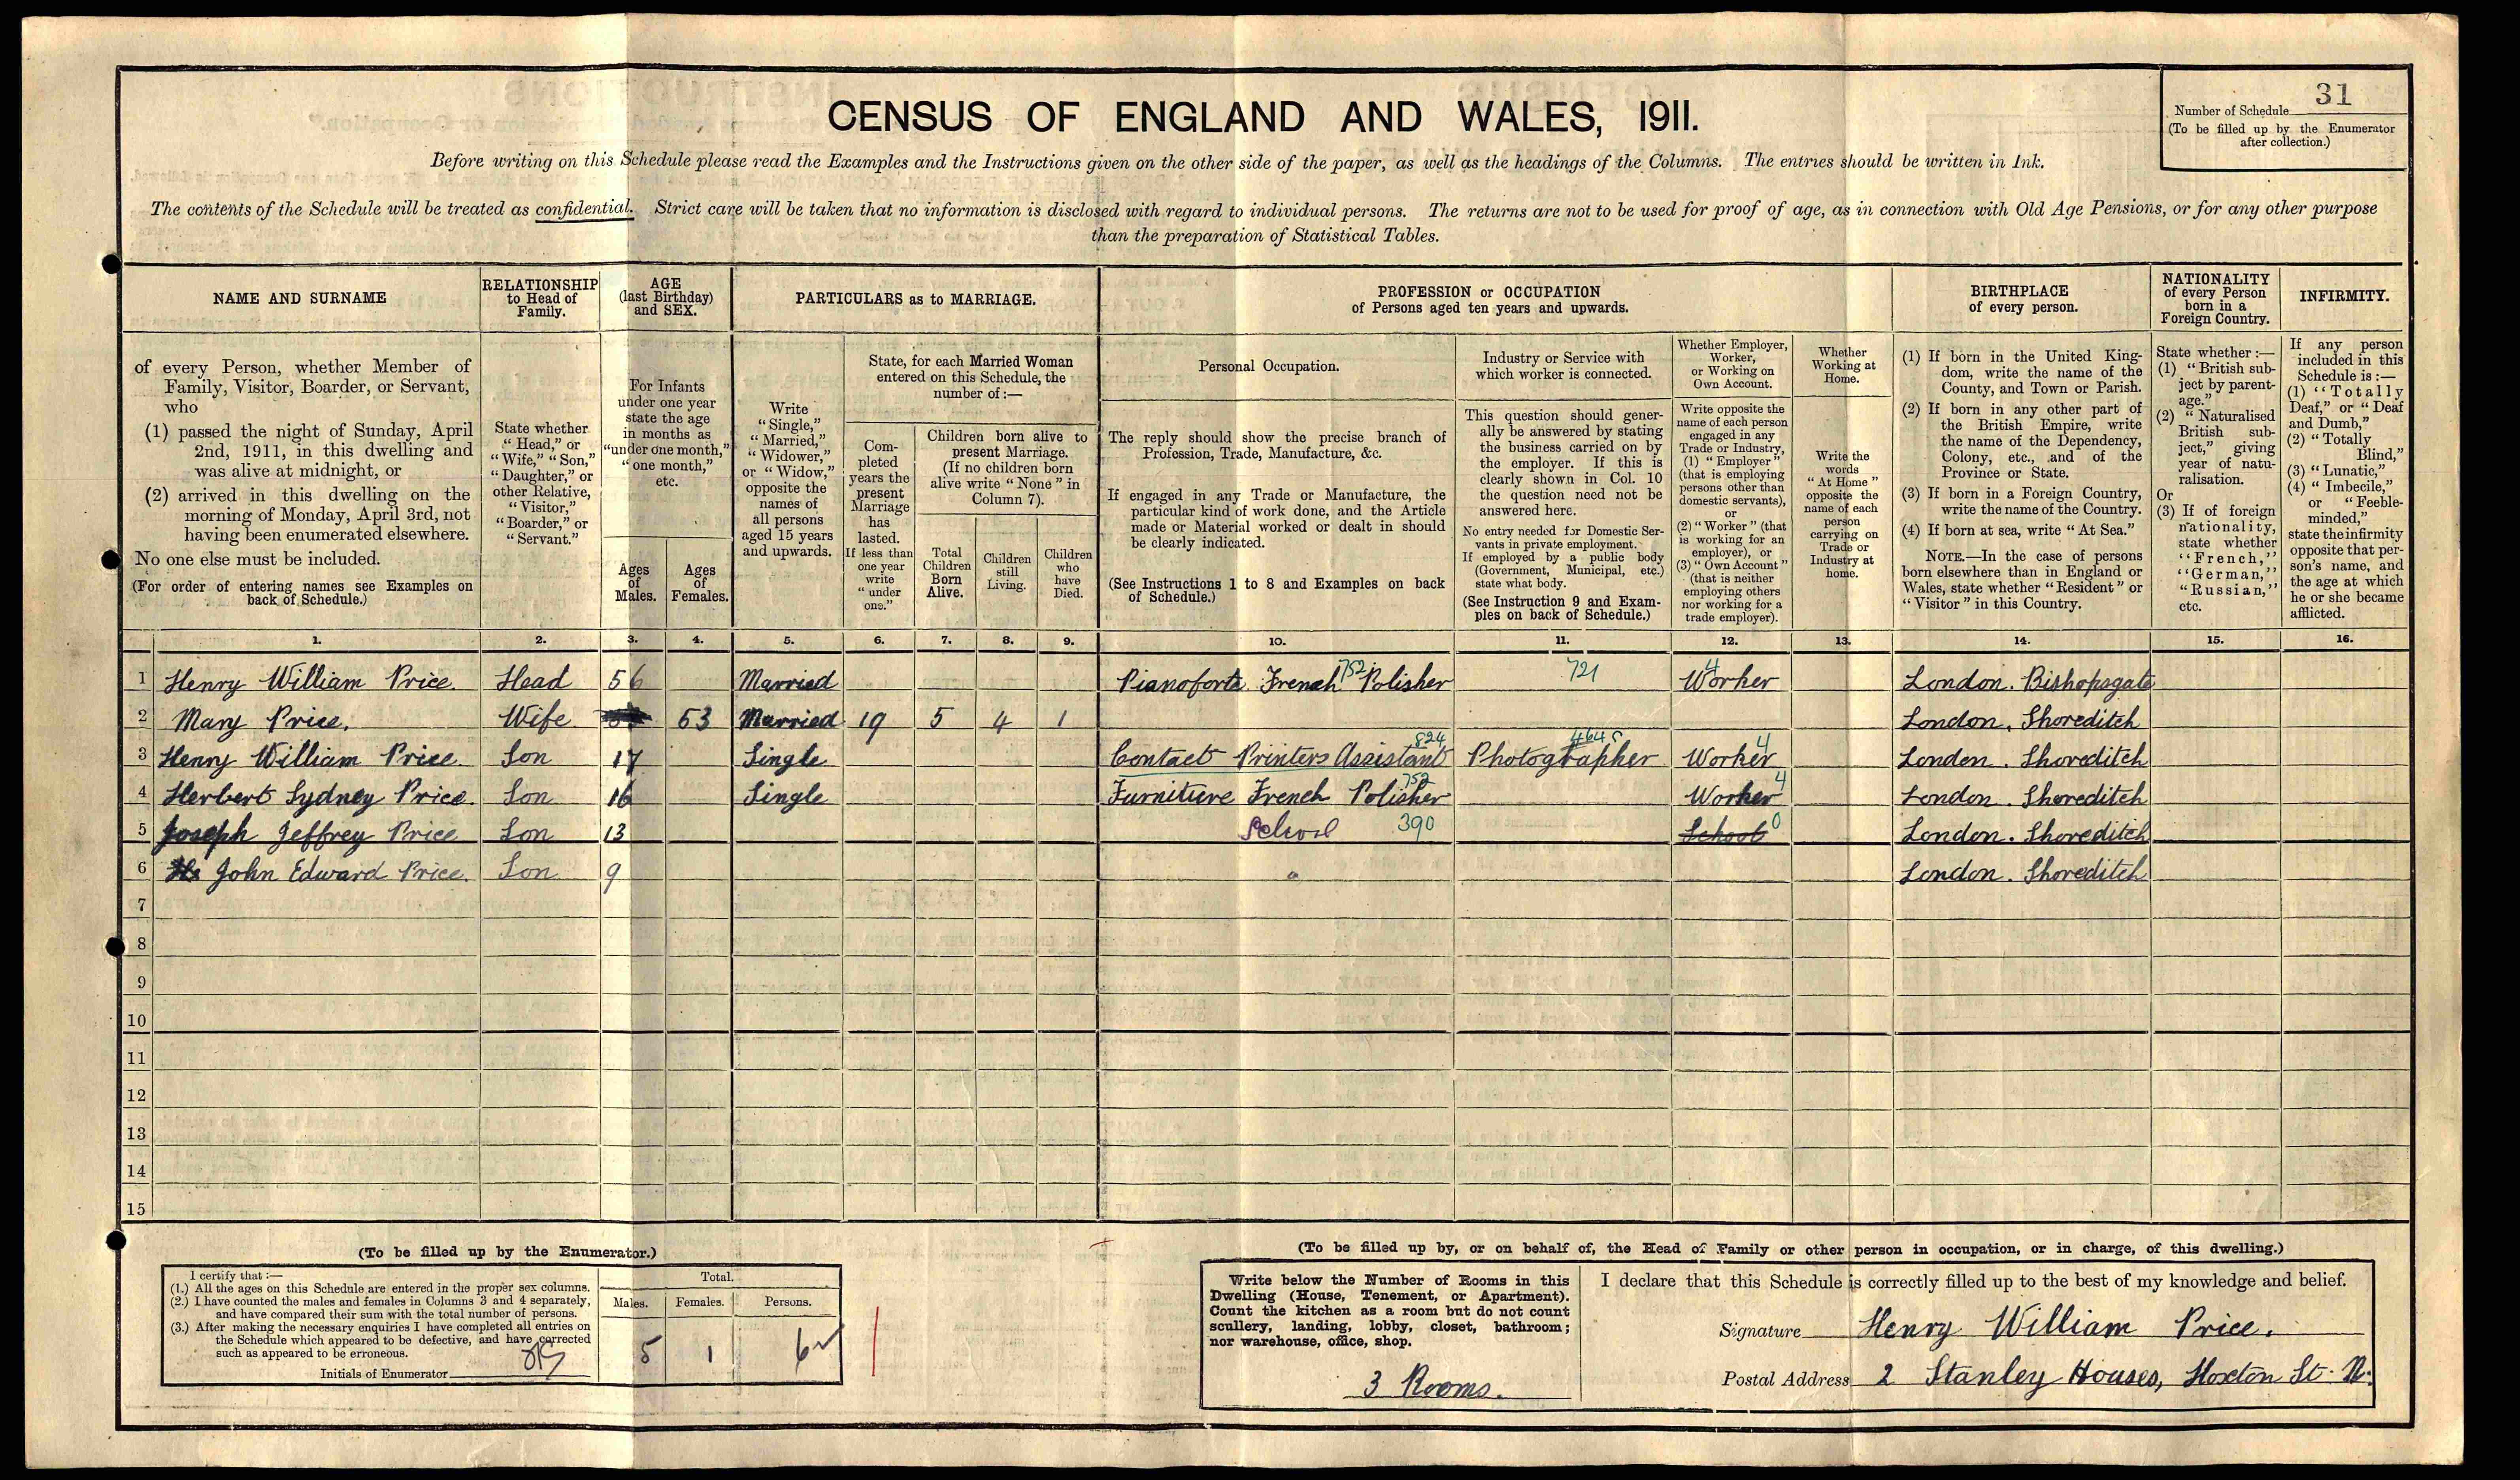 CENSUS OF ENGLAND AND WALES, 1911.
Number of Schedule 31
(To be filled up by the Enumerator
after collection.)
Before writing on this Schedule please read the Examples and the Instructions given on the other side of the paper, as well as the headings of the Columns. The entries should be written in Ink.
The contents of the Schedule will be treated as confidential. Strict care will be taken that no information is disclosed with regard to individual persons. The returns are not to be used for proof of age, as in connection with Old Age Pensions, or for any other purpose
than the preparation of Statistical Tables.
NAME AND SURNAME
RELATIONSHIP
to Head of
Family.
AGE
(last Birthday)
and SEX.
PARTICULARS as to MARRIAGE.
PROFESSION or OCCUPATION
of Persons aged ten years and upwards.
BIRTHPLACE
of every person.
NATIONALITY
of every Person
born in a
Foreign Country.
INFIRMITY.
of every Person, whether Member of
Family, Visitor, Boarder, or Servant,
who
(1) passed the night of Sunday, April
2nd, 1911, in this dwelling and
was alive at midnight, or
(2) arrived in this dwelling on the
morning of Monday, April 3rd, not
having been enumerated elsewhere.
No one else must be included.
(For order of entering names see Examples on
back of Schedule.)
State whether
"Head," or
"Wife," "Son,"
"Daughter," or
other Relative,
"Visitor,"
"Boarder," or
"Servant."
For Infants
under one year
state the age
in months as
"under one month,"
"one month,"
etc.
Ages
of
Males.
Ages
of
Females.
Write
"Single,"
"Married,"
"Widower,"
or "Widow,"
opposite the
names of
all persons
aged 15 years
and upwards.
State, for each Married Woman
entered on this Schedule, the
number of:—
Com-
pleted
years the
present
Marriage
has
lasted.
If less than
one year
write
"under
one."
Children born alive to
present Marriage.
(If no children born
alive write "None" in
Column 7).
Total
Children
Born
Alive.
Children
still
Living.
Children
who
have
Died.
Personal Occupation.
The reply should show the precise branch of
Profession, Trade, Manufacture, &c.
If engaged in any Trade or Manufacture, the
particular kind of work done, and the Article
made or Material worked or dealt in should
be clearly indicated.
(See Instructions 1 to 8 and Examples on back
of Schedule.)
Industry or Service with
which worker is connected.
This question should gener-
ally be answered by stating
the business carried on by
the employer. If this is
clearly shown in Col. 10
the question need not be
answered here.
No entry needed for Domestic Ser-
vants in private employment.
If employed by a public body
(Government, Municipal, etc.)
state what body.
(See Instruction 9 and Exam-
ples on back of Schedule.)
Whether Employer,
Worker,
or Working on
Own Account.
Write opposite the
name of each person
engaged in any
Trade or Industry,
(1) "Employer"
(that is employing
persons other than
domestic servants),
or
(2) "Worker" (that
is working for an
employer), or
(3) "Own Account"
(that is neither
employing others
nor working for a
trade employer).
Whether
Working at
Home.
Write the
words
"At Home"
opposite the
name of each
person
carrying on
Trade or
Industry at
home.
(1) If born in the United King-
dom, write the name of the
County, and Town or Parish.
(2) If born in any other part of
the British Empire, write
the name of the Dependency,
Colony, etc., and of the
Province or State.
(3) If born in a Foreign Country,
write the name of the Country.
(4) If born at sea, write "At Sea."
NOTE.—In the case of persons
born elsewhere than in England or
Wales, state whether "Resident" or
"Visitor" in this Country.
State whether:—
(1) "British sub-
ject by parent-
age."
(2) "Naturalised
British sub-
ject," giving
year of natu-
ralisation.
Or
(3) If of foreign
nationality,
state whether
"French,"
"German,"
"Russian,"
etc.
If any person
included in this
Schedule is:—
(1) "Totally
Deaf," or "Deaf
and Dumb,"
(2) "Totally
Blind,"
(3) "Lunatic,"
(4) "Imbecile,"
or "Feeble-
minded,"
state the infirmity
opposite that per-
son's name, and
the age at which
he or she became
afflicted.
1. 2. 3. 4. 5. 6. 7. 8. 9. 10. 11. 12. 13. 14. 15. 16.
1 Henry William Price. Head 56 Married Pianoforte French 752 Polisher 721 Worker 4 London. Bishopsgate
2 Mary Price. Wife 53 Married 19 5 4 1 London. Shoreditch
3 Henry William Price. Son 17 Single Contact Printers Assistant 824 Photographer Worker 4 London. Shoreditch
4 Herbert Sydney Price. Son 16 Single Furniture French Polisher 752 Worker 4 London. Shoreditch
5 Joseph Jeffrey Price Son 13 School 390 School 0 London. Shoreditch
6 John Edward Price. Son 9 London. Shoreditch
7
8
9
10
11
12
13
14
15
(To be filled up by the Enumerator.)
I certify that:—
(1.) All the ages on this Schedule are entered in the proper sex columns.
(2.) I have counted the males and females in Columns 3 and 4 separately,
and have compared their sum with the total number of persons.
(3.) After making the necessary enquiries I have completed all entries on
the Schedule which appeared to be defective, and have corrected
such as appeared to be erroneous.
Initials of Enumerator
Total.
Males. Females. Persons.
5 1 6
(To be filled up by, or on behalf of, the Head of Family or other person in occupation, or in charge, of this dwelling.)
Write below the Number of Rooms in this
Dwelling (House, Tenement, or Apartment).
Count the kitchen as a room but do not count
scullery, landing, lobby, closet, bathroom;
nor warehouse, office, shop.
3 Rooms.
I declare that this Schedule is correctly filled up to the best of my knowledge and belief.
Signature Henry William Price.
Postal Address 2 Stanley Houses, Hoxton St. N.